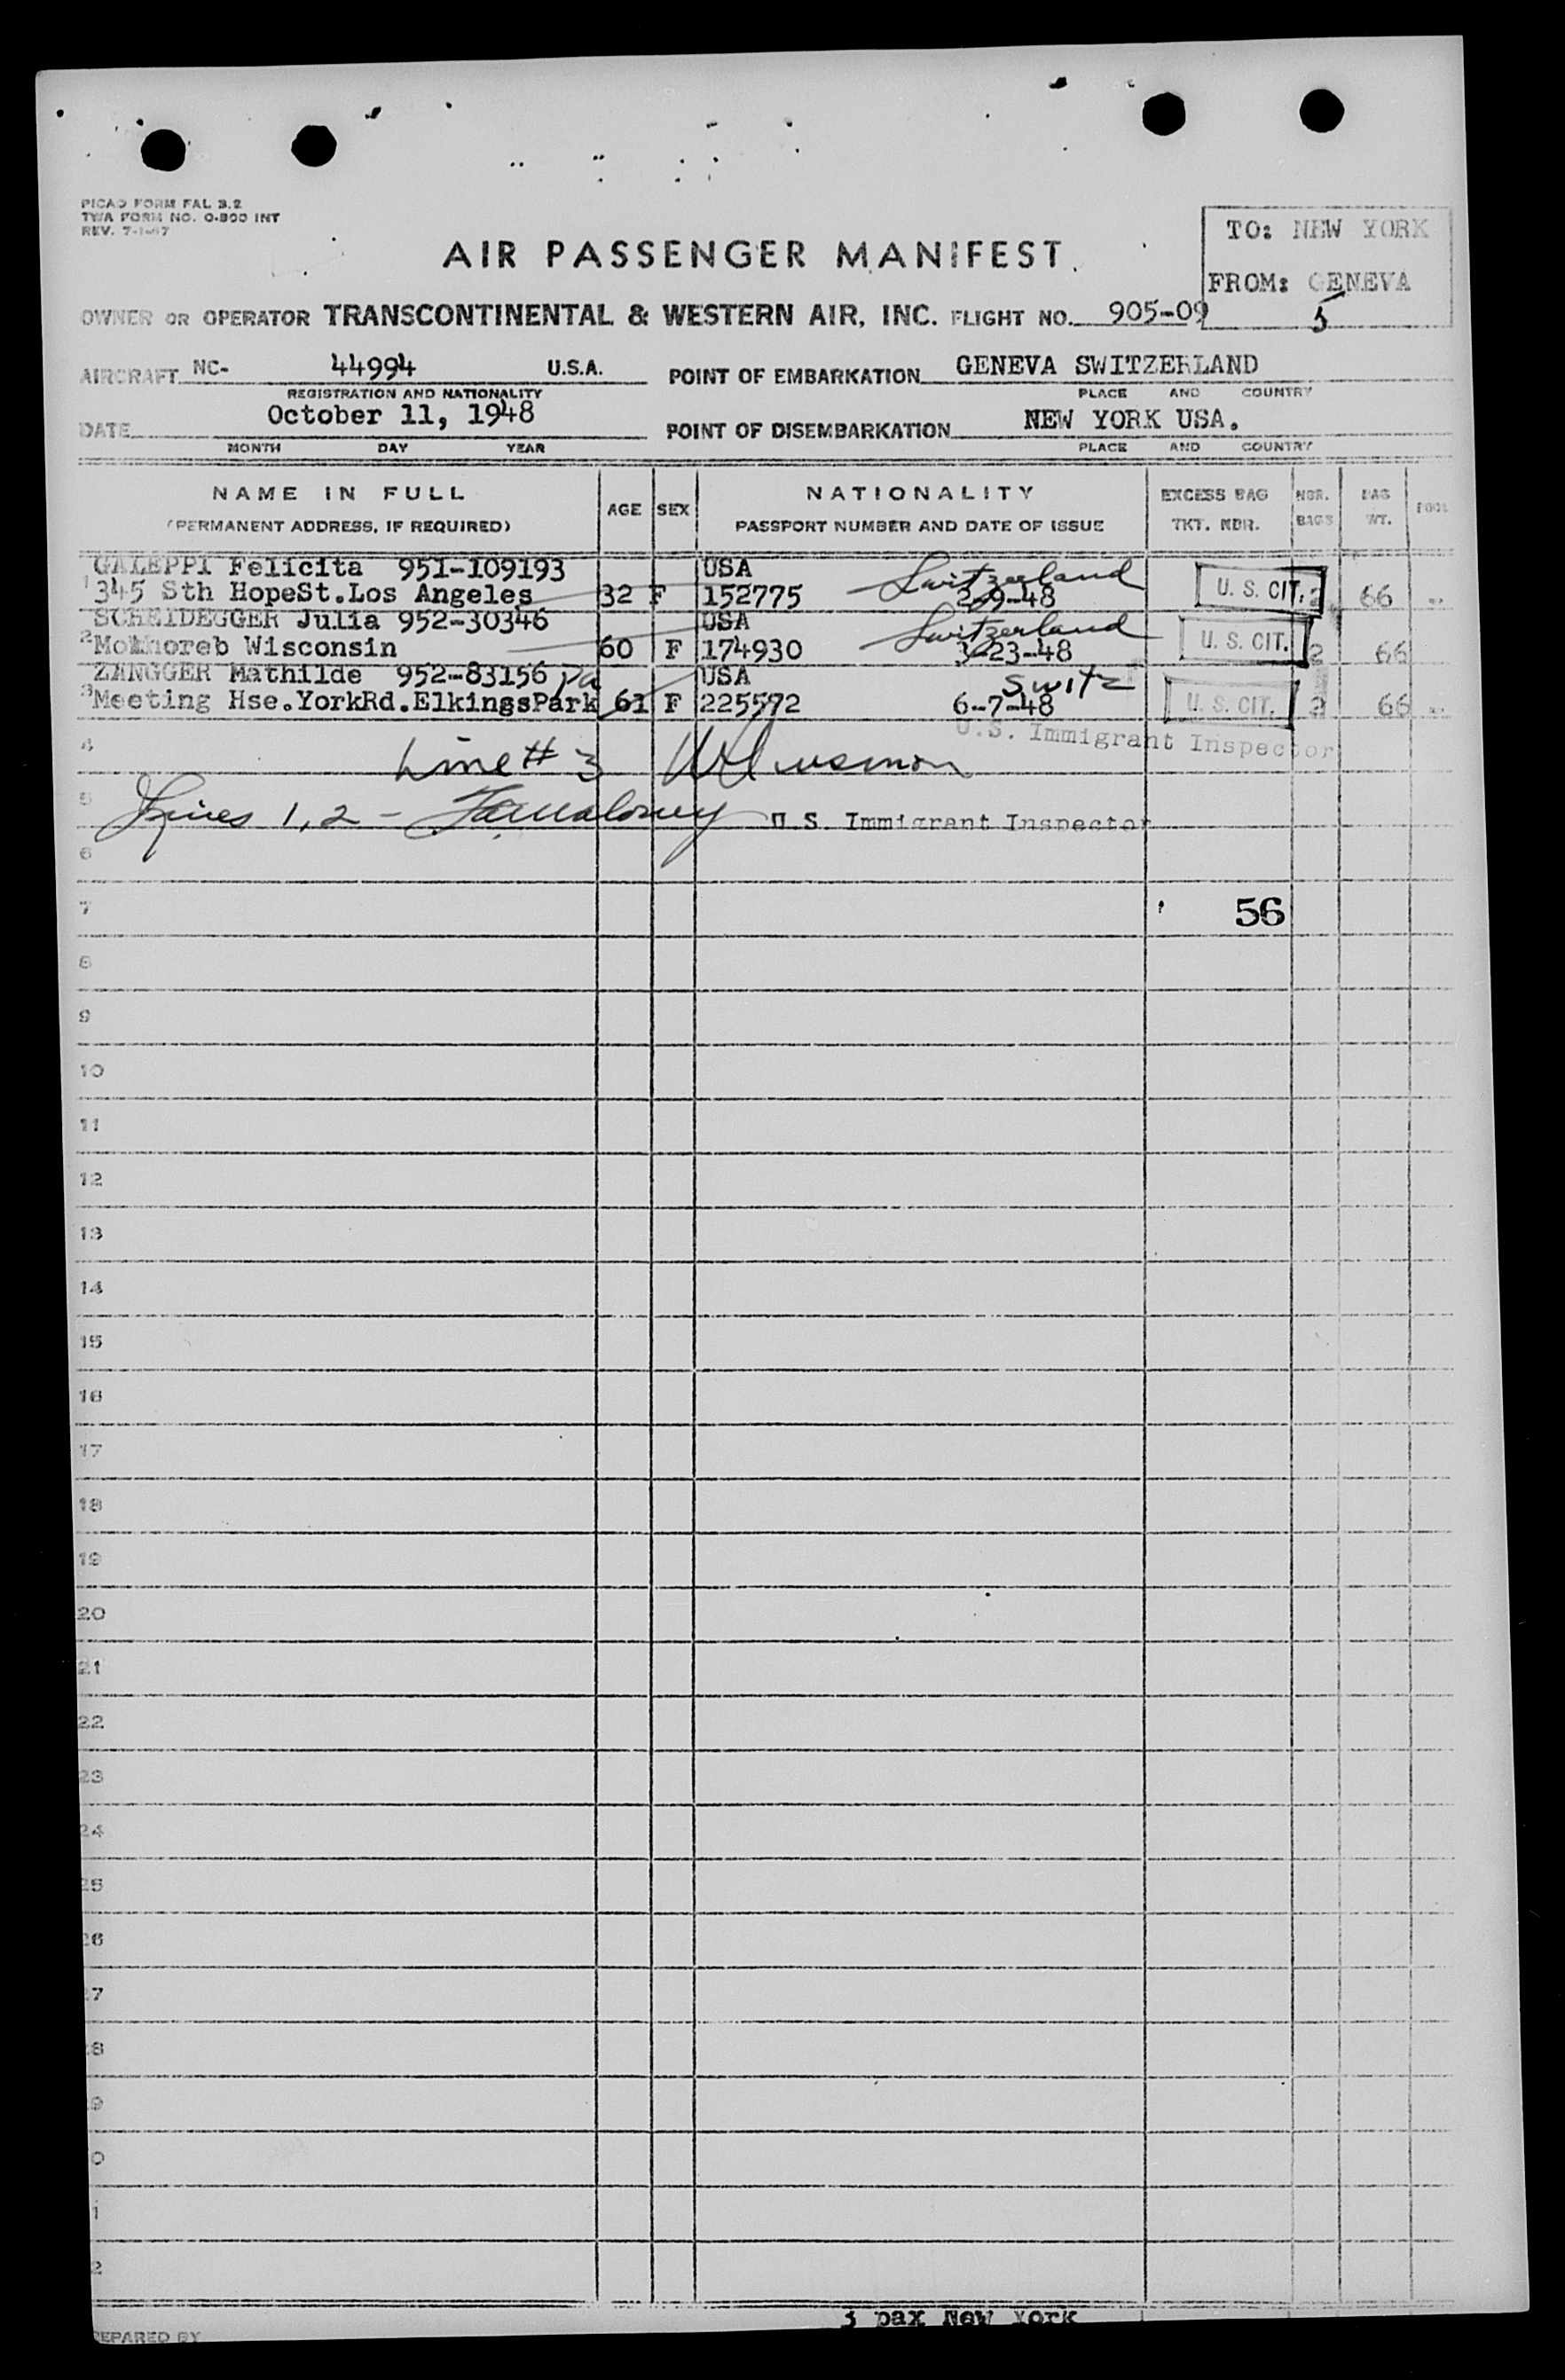 PICAO FORM FAL 3.2
TWA FORM NO. O-800 INT
REV. 7-1-47
TO: NEW YORK
AIR PASSENGER MANIFEST
FROM: GENEVA
OWNER OR OPERATOR TRANSCONTINENTAL & WESTERN AIR, INC. FLIGHT NO. 905-09
5
AIRCRAFT NC- 44994 U.S.A. POINT OF EMBARKATION GENEVA SWITZERLAND
REGISTRATION AND NATIONALITY PLACE AND COUNTRY
DATE October 11, 1948 POINT OF DISEMBARKATION NEW YORK USA.
MONTH DAY YEAR PLACE AND COUNTRY
NAME IN FULL AGE SEX NATIONALITY EXCESS BAG NBR. BAG
(PERMANENT ADDRESS, IF REQUIRED) PASSPORT NUMBER AND DATE OF ISSUE TKT. NBR. BAGS WT.
GALEPPI Felicita 951-109193 USA Switzerland
1 345 Sth HopeSt.Los Angeles 32 F 152775 2-9-48 U. S. CIT. 2 66
SCHEIDEGGER Julia 952-30346 USA Switzerland
2 Mothoreb Wisconsin 60 F 174930 3-23-48 U. S. CIT. 2 66
ZANGGER Mathilde 952-83156 Pa USA Switz
3 Meeting Hse.YorkRd.ElkingsPark 61 F 225572 6-7-48 U. S. CIT. 2 66
U.S. Immigrant Inspector
4 Line # 3
5 Lines 1, 2 - U.S. Immigrant Inspector
6
7 56
8
9
10
11
12
13
14
15
16
17
18
19
20
21
22
23
24
25
26
7
8
9
0
1
2
3 pax New York
PREPARED BY